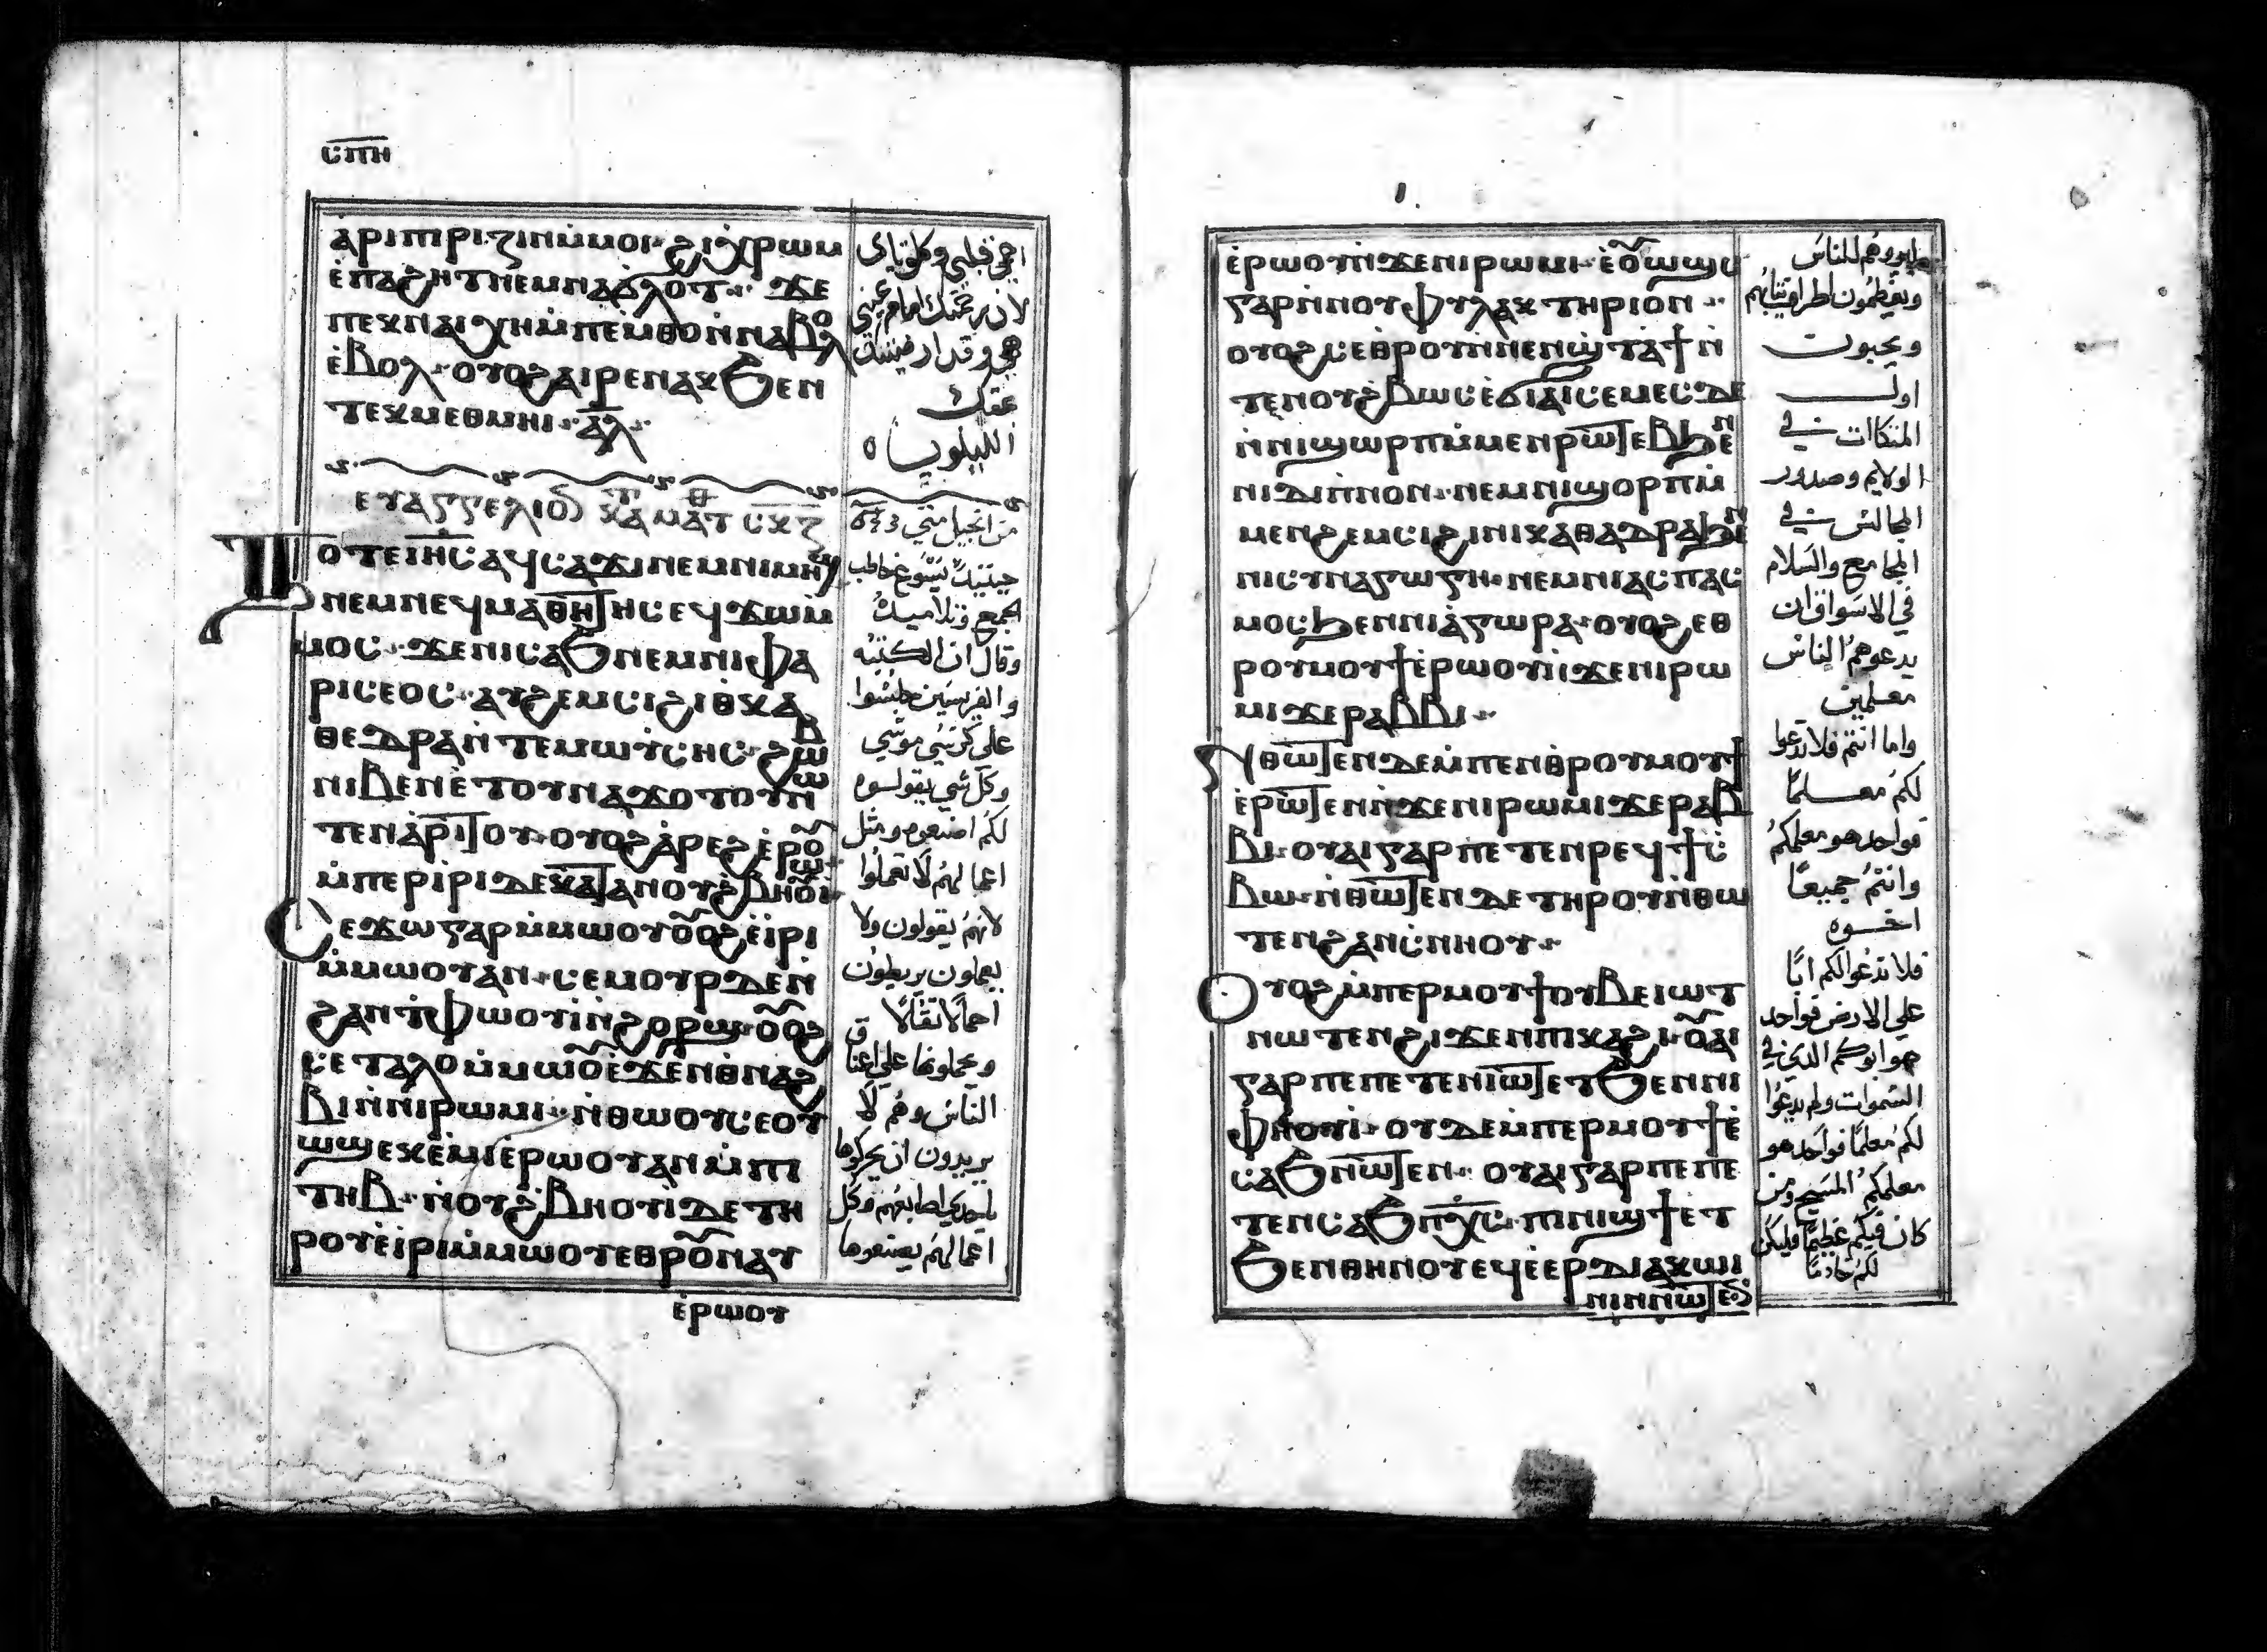 ⲥⲡⲏ
ⲁ̀ⲣⲓⲡⲓⲣⲁⲍⲓⲛ ⲙ̀ⲙⲟⲓ
ⲉ̀ⲡⲁϩⲏⲧ ⲛⲉⲙ ⲛⲁϭⲗⲟⲧ ϫⲉ
ⲡⲉⲕⲛⲁⲓ ⲭⲏ ⲙ̀ⲡⲉⲙⲑⲟ ⲛ̀ⲛⲁⲃⲁⲗ
ⲉ̀ⲃⲟⲗ ⲟⲩⲟϩ ⲁⲓⲣⲁⲛⲁⲕ ϧⲉⲛ
ⲧⲉⲕⲙⲉⲑⲙⲏⲓ ⲁ̅ⲗ̅
ⲉⲩⲁⲅⲅⲉⲗⲓⲟⲛ ⲕⲁⲧⲁ ⲙⲁⲧⲑ ⲥⲕⲍ
ⲧⲟⲧⲉ ⲓ̅ⲏ̅ⲥ̅ ⲁϥⲥⲁϫⲓ ⲛⲉⲙ ⲛⲓⲙⲏϣ
ⲛⲉⲙ ⲛⲉϥⲙⲁⲑⲏⲧⲏⲥ ⲉϥϫⲱ ⲙ̀
ⲙⲟⲥ ϫⲉ ⲛⲓⲥⲁϧ ⲛⲉⲙ ⲛⲓⲫⲁ
ⲣⲓⲥⲉⲟⲥ ⲁⲩϩⲉⲙⲥⲓ ϩⲓ ⲑⲕⲁ
ⲑⲉⲇⲣⲁ ⲛ̀ⲧⲉ ⲙⲱⲩⲥⲏⲥ ϩⲱⲃ
ⲛⲓⲃⲉⲛ ⲉ̀ⲧⲟⲩⲛⲁϫⲟⲧⲟⲩ ⲛⲱ
ⲧⲉⲛ ⲁ̀ⲣⲓⲧⲟⲩ ⲟⲩⲟϩ ⲁ̀ⲣⲉϩ ⲉ̀ⲣⲱⲟⲩ
ⲙ̀ⲡⲉⲣⲓ̀ⲣⲓ ⲇⲉ ⲕⲁⲧⲁ ⲛⲟⲩϩ̀ⲃⲏⲟⲩⲓ̀
ⲥⲉϫⲱ ⲅⲁⲣ ⲙ̀ⲙⲱⲟⲩ ⲟⲩⲟϩ ⲥⲉⲓ̀ⲣⲓ
ⲙ̀ⲙⲱⲟⲩ ⲁⲛ ⲥⲉⲙⲟⲩⲣ ⲇⲉ ⲛ̀
ϩⲁⲛⲉⲧⲫⲱⲟⲩⲓ̀ ⲛ̀ϩⲟⲣϣ ⲟⲩⲟϩ
ⲥⲉⲧⲁⲗⲟ ⲙ̀ⲙⲱⲟⲩ ⲉ̀ϫⲉⲛ ⲑⲛⲁϩ
ⲃⲓ ⲛ̀ⲛⲓⲣⲱⲙⲓ ⲛ̀ⲑⲱⲟⲩ ⲥⲉⲟⲩ
ⲱϣ ⲉⲕⲉⲙ̀ⲓ ⲉ̀ⲣⲱⲟⲩ ⲁⲛ ⲙ̀ⲡⲓ
ⲧⲏⲃ ⲛⲟⲩϩ̀ⲃⲏⲟⲩⲓ̀ ⲇⲉ ⲧⲏ
ⲣⲟⲩ ⲉ̀ⲓⲣⲓ ⲙ̀ⲙⲱⲟⲩ ⲉⲑⲣⲟⲩⲛⲁⲩ
ⲉ̀ⲣⲱⲟⲩ
لان رحمتك امام عيني
الليلويا
من انجيل متي
حينئذ يسوع خاطب
الجمع وتلاميذه
وقال ان الكتبه
والفريسيين جلسوا
علي كرسي موسي
وكل شي يقولوه
لكم اصنعوه ومثل
اعمالهم لا تعملوا
لانهم يقولون ولا
يعملون يربطون
احمالا ثقالا
ويحملونها علي اعناق
الناس وهم لا
يريدون ان يحركوها
اعمالهم يصنعوها
ⲉ̀ⲣⲱⲟⲩ ⲛ̀ϫⲉ ⲛⲓⲣⲱⲙⲓ ⲥⲉⲟⲩⲱϣⲥ
ⲅⲁⲣ ⲛ̀ⲛⲟⲩⲫⲩⲗⲁⲕⲧⲏⲣⲓⲟⲛ
ⲟⲩⲟϩ ⲥⲉⲑⲣⲟⲩⲛ̀ⲛⲉⲛϣⲧⲁϯ ⲛ̀
ⲧⲉ ⲛⲟⲩϩ̀ⲃⲱⲥ ⲉ̀ϭⲓⲁⲓ ⲥⲉⲙⲉⲥ ⲇⲉ
ⲛ̀ⲛⲓϣⲱⲣⲡ ⲙ̀ⲙⲉⲛⲣⲱⲧⲉⲃ ϧⲉⲛ
ⲛⲓⲇⲓⲡⲛⲟⲛ ⲛⲉⲙ ⲛⲓϣⲟⲣⲡ ⲙ̀
ⲙⲉⲛϩⲉⲙⲥⲓ ϩⲓ ⲛⲓⲕⲁⲑⲁⲇⲣⲁ ϧⲉⲛ
ⲛⲓⲥⲩⲛⲁⲅⲱⲅⲏ ⲛⲉⲙ ⲛⲓⲁⲥⲡⲁⲥ
ⲙⲟⲥ ϧⲉⲛ ⲛⲓⲁ̀ⲅⲱⲣⲁ ⲟⲩⲟϩ ⲉⲑ
ⲣⲟⲩⲙⲟⲩϯ ⲉ̀ⲣⲱⲟⲩ ⲛ̀ϫⲉ ⲛⲓⲣⲱ
ⲙⲓ ϫⲉ ⲣⲁⲃⲃⲓ
ⲛ̀ⲑⲱⲧⲉⲛ ⲇⲉ ⲙ̀ⲡⲉⲛⲑⲣⲟⲩⲙⲟⲩϯ
ⲉ̀ⲣⲱⲧⲉⲛ ⲛ̀ϫⲉ ⲛⲓⲣⲱⲙⲓ ϫⲉ ⲣⲁⲃ
ⲃⲓ ⲟⲩⲁⲓ ⲅⲁⲣ ⲡⲉ ⲧⲉⲛⲣⲉϥϯⲥ̀
ⲃⲱ ⲛ̀ⲑⲱⲧⲉⲛ ⲇⲉ ⲧⲏⲣⲟⲩ ⲛ̀ⲑⲱ
ⲧⲉⲛ ϩⲁⲛⲥ̀ⲛⲏⲟⲩ
ⲟⲩⲟϩ ⲙ̀ⲡⲉⲣⲙⲟⲩϯ ⲟⲩⲃⲉ ⲓⲱⲧ
ⲛⲱⲧⲉⲛ ϩⲓϫⲉⲛ ⲡⲓⲕⲁϩⲓ ⲟⲩⲁⲓ
ⲅⲁⲣ ⲡⲉ ⲡⲉⲧⲉⲛⲓⲱⲧ ⲉⲧϧⲉⲛ ⲛⲓ
ⲫⲏⲟⲩⲓ̀ ⲟⲩⲇⲉ ⲙ̀ⲡⲉⲣⲙⲟⲩϯ ⲉ̀
ⲥⲁϧ ⲛⲱⲧⲉⲛ ⲟⲩⲁⲓ ⲅⲁⲣ ⲡⲉ ⲡⲉ
ⲧⲉⲛⲥⲁϧ ⲡ̅ⲭ̅ⲥ̅ ⲡⲓⲛⲓϣϯ ⲉⲧ
ϧⲉⲛ ⲑⲏⲛⲟⲩ ⲉϥⲉ̀ⲉⲣ ⲇⲓⲁⲕⲱⲛ
ⲛⲱⲧⲉⲛ
ويعظمون اطراف ثيابهم
ويحبون
اول
المتكاات في
الولايم وصدور
المجالس في
المجامع والسلام
في الاسواق ان
يدعوهم الناس
معلمين
واما انتم فلا تدعوا
لكم معلما
فواحد هو معلمكم
وانتم جميعا
اخوه
فلا تدعوا لكم ابا
علي الارض فواحد
هو ابوكم الذي في
السموات ولا تدعوا
لكم معلما فواحد هو
معلمكم المسيح ومن
كان فيكم عظيما فليكن
لكم خادما